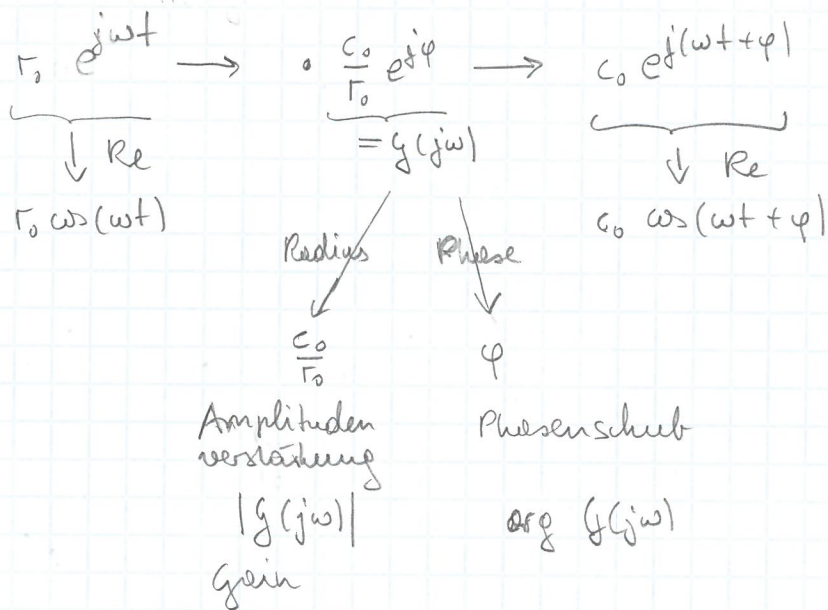 r₀ e^{jωt} → · c₀/r₀ e^{jφ} → c₀ e^{j(ωt+φ)}
↓ Re = G(jω) ↓ Re
r₀ cos(ωt) c₀ cos(ωt + φ)
Radius Phase
c₀/r₀ φ
Amplituden Phasenschub
verstärkung
|G(jω)| arg G(jω)
Gain